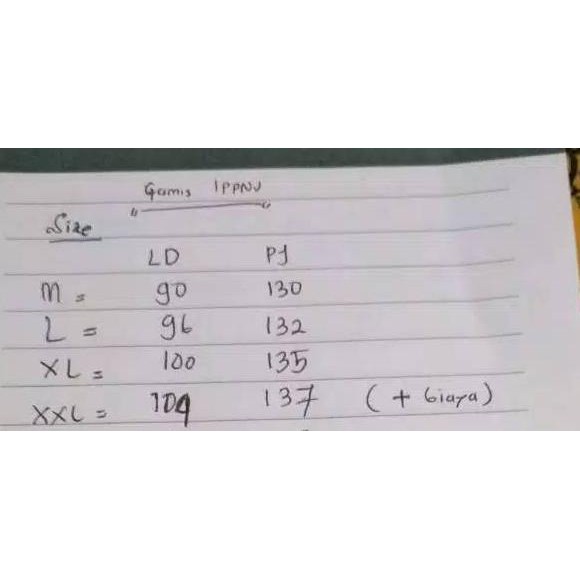 Gamis IPPNU
Size
LD PJ
M = 90 130
L = 96 132
XL = 100 135
XXL = 104 137 (+ biaya)